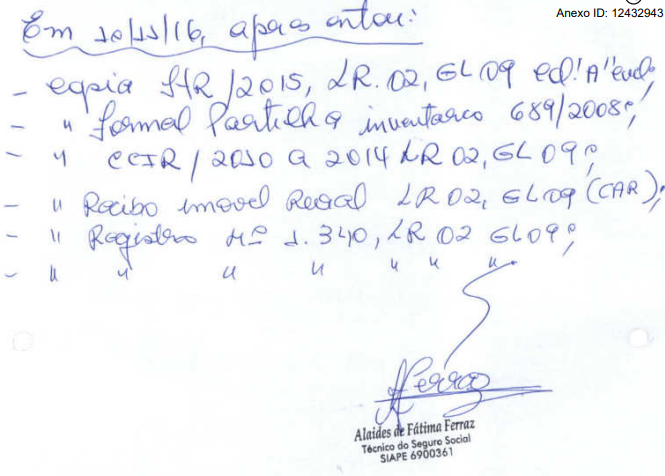 Anexo ID: 12432943
Em 10/11/16, apresentou:
- copia ITR/2015, LR. 02, GL 09
- " formal Partilha inventario 689/2008;
- " CCIR/2010 a 2014 LR 02, GL 09;
- " Recibo imovel Rural LR 02, GL 09 (CAR);
- " Registro Nº 1.340, LR 02 GL 09;
- " " " " " " "
Alaides de Fátima Ferraz
Técnico do Seguro Social
SIAPE 6900361